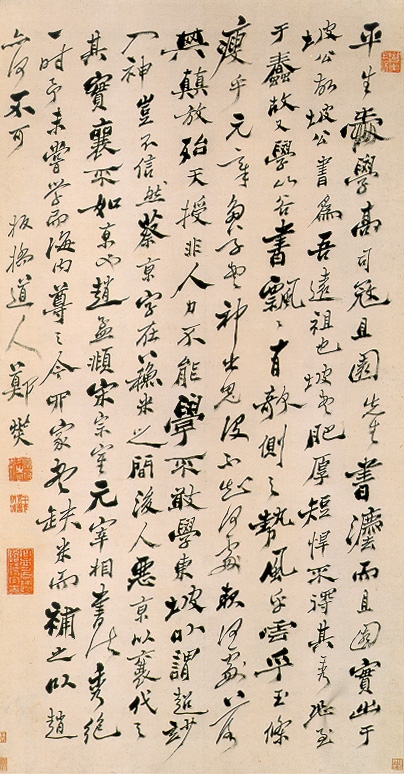 平生愛學高司寇且園先生書灋而且園實出于
坡公故坡公書爲吾遠祖也坡書肥厚短悍不得其秀恐至
于蠢故又學山谷書飄〻有欹側之勢風乎雲乎玉條
瘦乎元章多草書神出鬼沒不知何處起何處落
與顛放殆天授非人力不能學不敢學東坡以謂超妙
入神豈不信然蔡京字在蘇米之間後人惡京以襄代之
其實襄不如京也趙孟頫宋宗室元宰相書法秀絕
一時予未嘗學而海內尊之今四家書缺米而補之以趙
亦何不可 板橋道人鄭燮